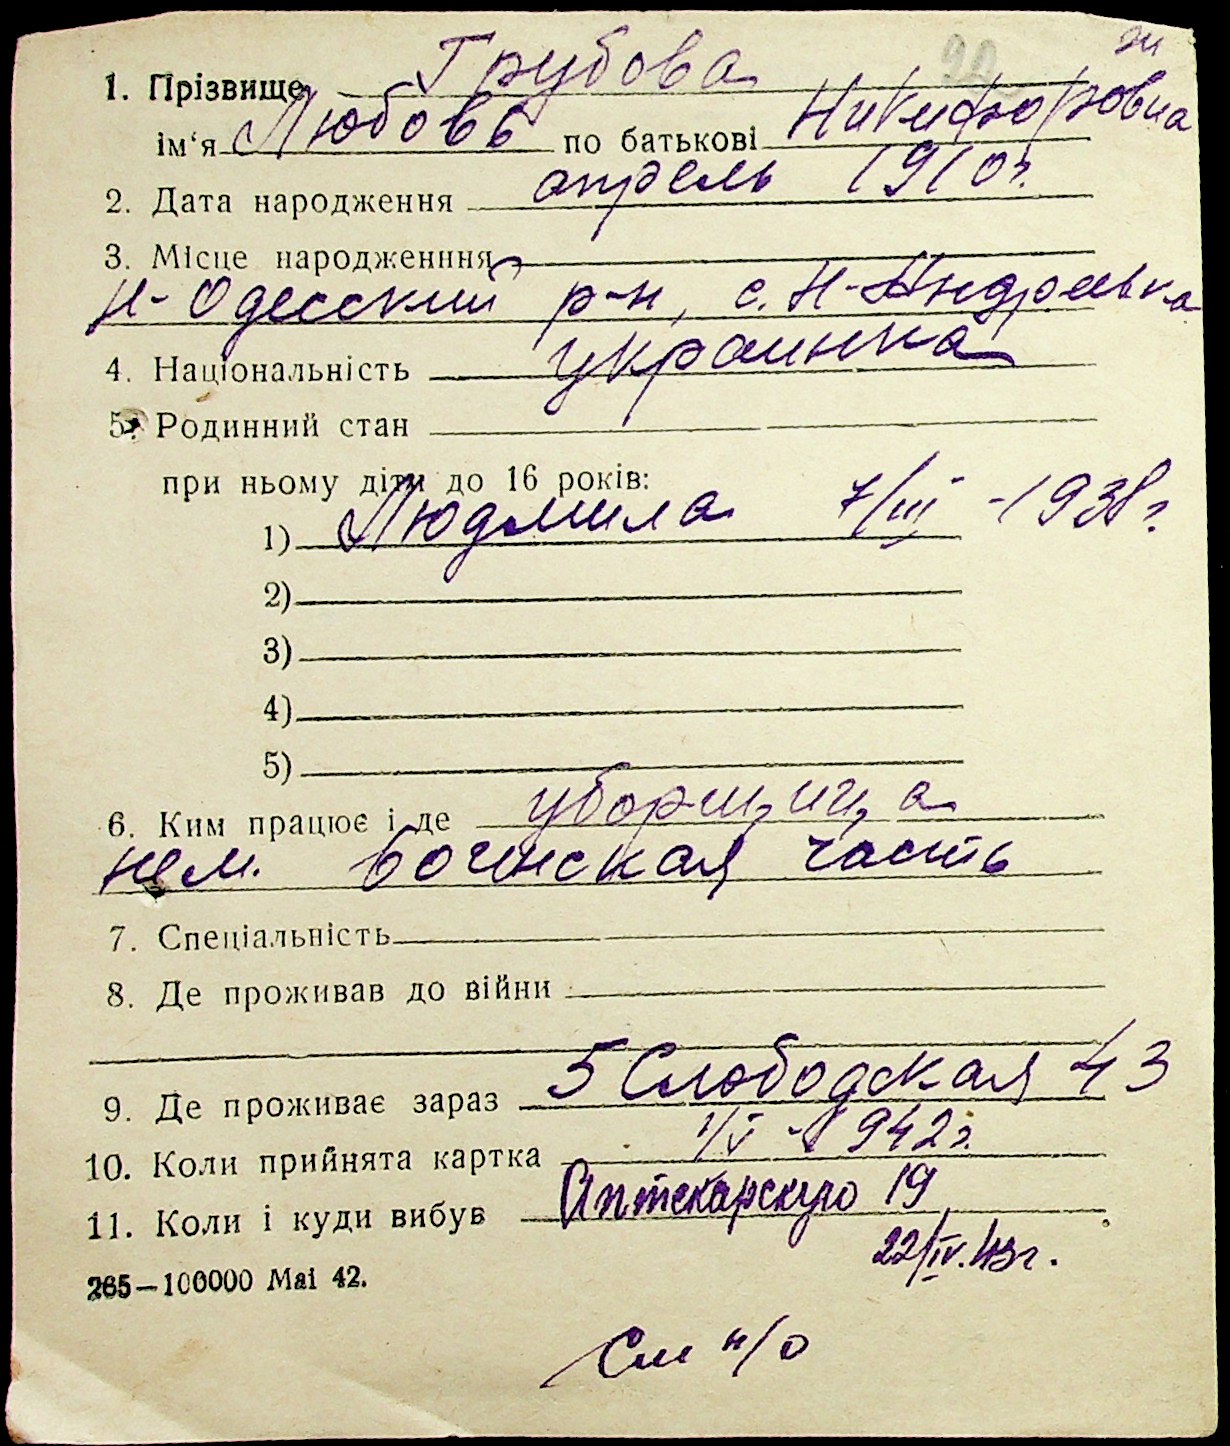 92 ж
1. Прізвище Грубова
ім‘я Любовь по батькові Никифоровна
2. Дата народження апрель 1910 г.
3. Місце народженння
Н-Одесский р-н, с. Н-Андреевка
4. Національність украинка
5. Родинний стан
при ньому діти до 16 років:
1) Людмила 7/III - 1938 г.
2)
3)
4)
5)
6. Ким працює і де уборщица
нем. воинская часть
7. Спеціальність
8. Де проживав до війни
9. Де проживає зараз 5 Слободская 43
10. Коли прийнята картка 1/V - 1942 г.
11. Коли і куди вибув Аптекарскую 19
22/IV.43 г.
265—100000 Mai 42.
См н/о